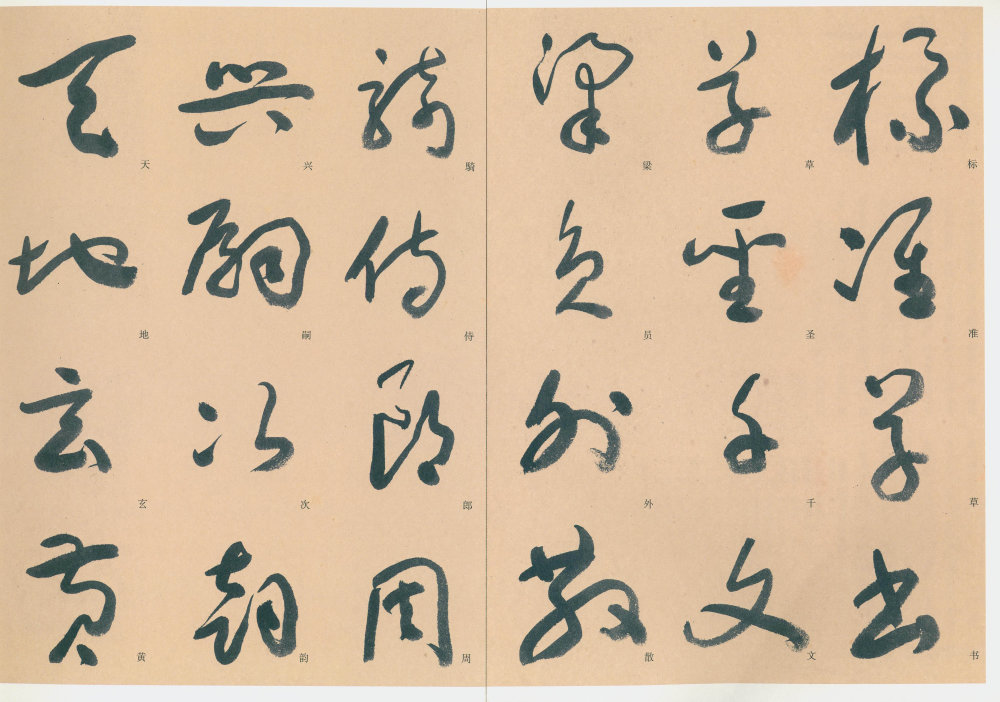 标准草书
草圣千文
梁员外散
騎侍郎周
兴嗣次韵
天地玄黄